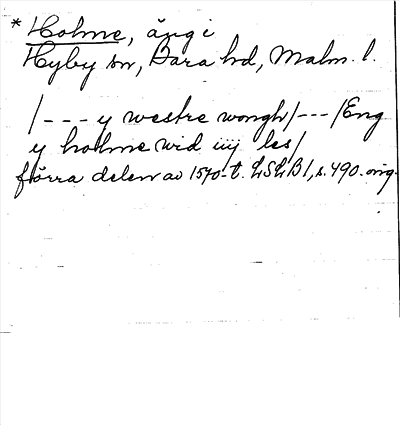 * Holme, äng i
Hyby sn, Bara hd, Malm. l.
/--- y westre wongh/---/Eng
y holme wid iiij les/
förra delen av 1570-t. LSLB 1, s. 490. orig.